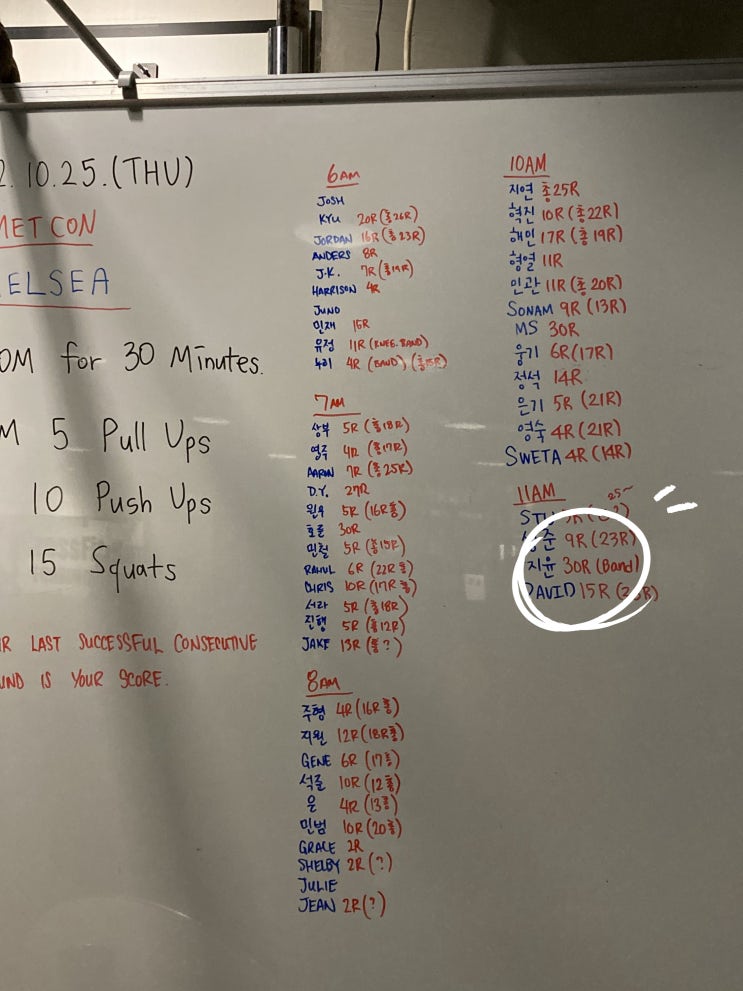 2.10.25.(THU)
METCON
ELSEA
OM for 30 Minutes.
M 5 Pull Ups
10 Push Ups
15 Squats
R LAST SUCCESSFUL CONSECUTIVE
UND IS YOUR SCORE.
6AM
JOSH
KYU 20R (총26R)
JORDAN 16R (총23R)
ANDERS 8R
J.K. 7R (총19R)
HARRISON 4R
JUNO
민재 15R
유정 11R (KNEE.BAND)
누리 4R (BAND) (총15R)
7AM
상부 5R (총18R)
영주 4R (총17R)
AARON 7R (총25R)
D.Y. 27R
원우 5R (16R총)
호준 30R
민철 5R (총15R)
RAHUL 6R (22R총)
CHRIS 10R (17R총)
서라 5R (총18R)
진행 5R (총12R)
JAKE 13R (총?)
8AM
주형 4R (16R총)
지원 12R (18R총)
GENE 6R (17총)
석준 10R (12총)
윤 4R (13총)
민범 10R (20총)
GRACE 2R
SHELBY 2R (?)
JULIE
JEAN 2R (?)
10AM
지연 총25R
혁진 10R (총22R)
해민 17R (총19R)
형열 11R
민관 11R (총20R)
SONAM 9R (13R)
MS 30R
웅기 6R (17R)
정석 14R
은기 5R (21R)
영숙 4R (21R)
SWETA 4R (14R)
11AM
25~
준 9R (23R)
지윤 30R (Band)
DAVID 15R